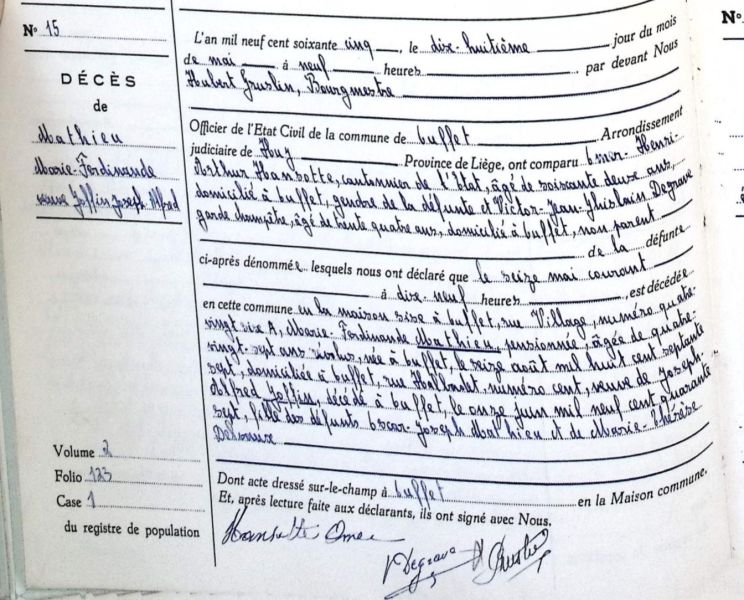 Nº 15
DÉCÈS
de
Mathieu
Marie-Ferdinande
veuve Joffin Joseph-Alfred
Volume 2
Folio 123
Case 1
du registre de population
L'an mil neuf cent soixante cinq, le dix-huitième jour du mois
de mai à neuf heures par devant Nous
Hubert Gruslin, Bourgmestre
Officier de l'Etat Civil de la commune de Buffet Arrondissement
judiciaire de Huy Province de Liège, ont comparu Omer-Henri-
Arthur Hansotte, cantonnier de l'Etat, âgé de soixante deux ans,
domicilié à Buffet, gendre de la défunte et Victor-Jean-Ghislain Degrave
garde champêtre, âgé de trente quatre ans, domicilié à Buffet, non parent
de la défunte
ci-après dénommée lesquels nous ont déclaré que le seize mai courant
à dix-neuf heures , est décédée
en cette commune en la maison sise à Buffet, rue Village, numéro quatre-
vingt six A, Marie-Ferdinande Mathieu, pensionnée, âgée de quatre-
vingt-sept ans révolus, née à Buffet, le seize août mil huit cent septante
sept, domiciliée à Buffet, rue numéro cent, veuve de Joseph-
Alfred Joffin, décédé à Buffet, le onze juin mil neuf cent quarante
sept, fille des défunts Oscar-Joseph Mathieu et de Marie-Thérèse
Dont acte dressé sur-le-champ à Buffet en la Maison commune.
Et, après lecture faite aux déclarants, ils ont signé avec Nous.
Hansotte Omer
V Degrave
Nº